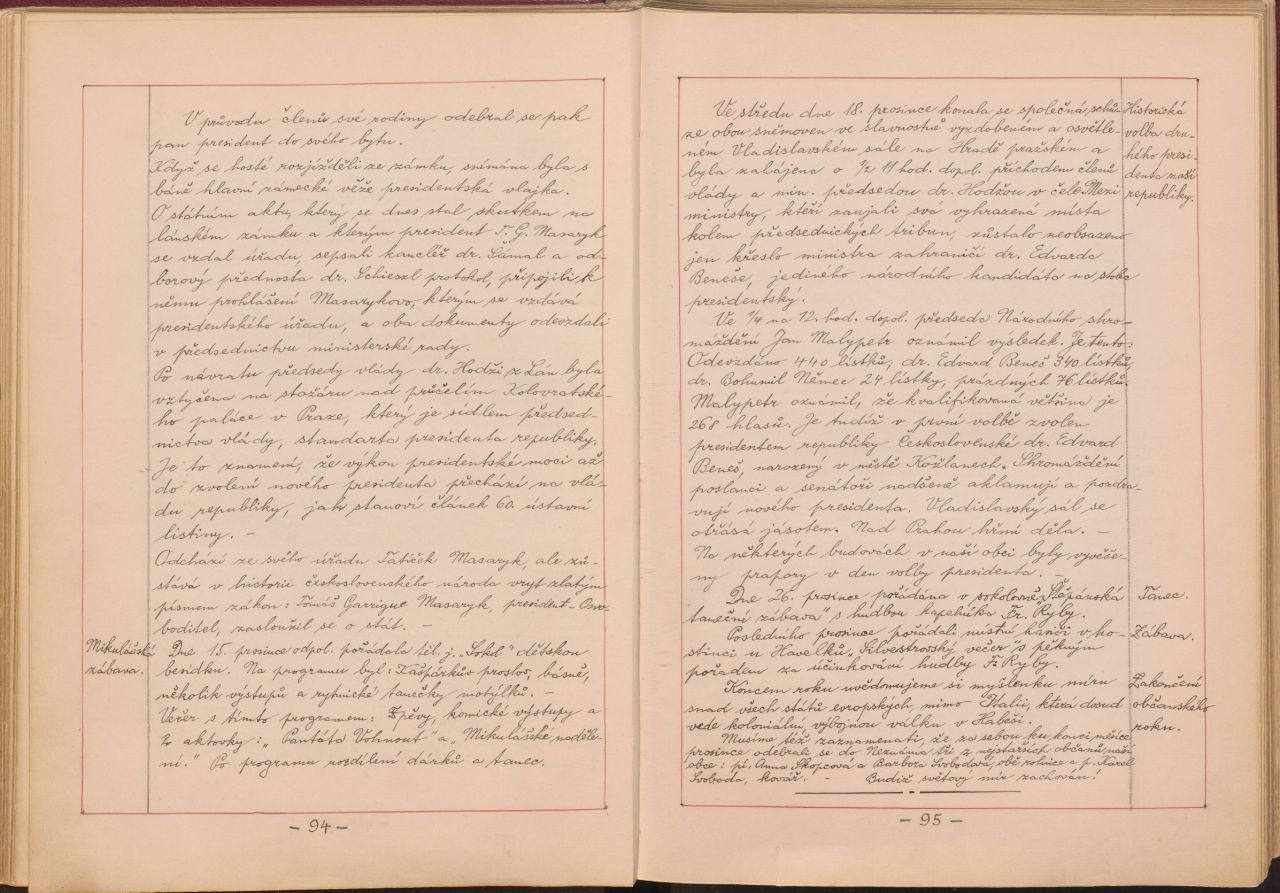 V průvodu členů své rodiny odebral se pak
pan president do svého bytu.
Když se hosté rozjížděli ze zámku, snímána byla s
báně hlavní zámecké věže presidentská vlajka.
O státním aktu, který se dnes stal skutkem na
lánském zámku a kterým president T. G. Masaryk
se vzdal úřadu, sepsali kancléř dr. Šámal a od-
borový přednosta dr. Schieszl protokol, připojili k
němu prohlášení Masarykovo, kterým se vzdává
presidentského úřadu, a oba dokumenty odevzdali
v předsednictvu ministerské rady.
Po návratu předsedy vlády dr. Hodži z Lán byla
vztyčena na stožáru nad průčelím Kolovratské-
ho paláce v Praze, který je sídlem předsed-
nictva vlády, standarta presidenta republiky.
Je to znamení, že výkon presidentské moci až
do zvolení nového presidenta přechází na vlá-
du republiky, jak stanoví článek 60. ústavní
listiny. -
Odchází ze svého úřadu Tatíček Masaryk, ale zů-
stává v historii československého národa vryt zlatým
písmem zákon: Tomáš Garrigue Masaryk, president-Osvo-
boditel, zasloužil se o stát. -
Mikulášská
zábava.
Dne 15. prosince odpol. pořádala těl. j. "Sokol" dětskou
besídku. Na programu byl: Kašpárkův proslov, básně,
několik výstupů a rytmické tanečky motýlků. -
Večer s tímto programem: Zpěvy, komické výstupy a
2 aktovky: "Pantáta Vohnout" a "Mikulášské naděle-
ní." Po programu rozdílení dárků a tanec.
- 94 -
Ve středu dne 18. prosince konala se společná schů-
ze obou sněmoven ve slavnostně vyzdobeném a osvětle-
ném Vladislavském sále na Hradě pražském a
byla zahájena o 1/2 11 hod. dopol. příchodem členů
vlády a min. předsedou dr. Hodžou v čele. Mezi
ministry, kteří zaujali svá vyhrazená místa
kolem předsednických tribun, zůstalo neobsazeno
jen křeslo ministra zahraničí dr. Edvarda
Beneše, jediného národního kandidáta na stolec
presidentský.
Historická
volba dru-
hého presi-
denta naší
republiky.
Ve 1/4 na 12. hod. dopol. předseda Národního shro-
máždění Jan Malypetr oznámil výsledek. Je tento:
Odevzdáno 440 lístků, dr. Edvard Beneš 340 lístků,
dr. Bohumil Němec 24 lístky, prázdných 76 lístků.
Malypetr oznámil, že kvalifikovaná většina je
268 hlasů. Je tudíž v první volbě zvolen
presidentem republiky Československé dr. Edvard
Beneš, narozený v městě Kožlanech. Shromáždění
poslanci a senátoři nadšeně aklamují a pozdra-
vují nového presidenta. Vladislavský sál se
otřásá jásotem. Nad Prahou hřmí děla. -
Na některých budovách v naší obci byly vyvěše-
ny prapory v den volby presidenta. -
Dne 26. prosince pořádána v sokolovně "Štěpánská
taneční zábava" s hudbou kapelníka Fr. Ryby.
Tanec.
Posledního prosince pořádali místní hasiči v ho-
stinci u Havelků "Silvestrovský večer" s pěkným
pořadem za účinkování hudby F. Ryby.
Zábava.
Koncem roku uvědomujeme si myšlenku míru
snad všech států evropských, mimo Italii, která dosud
vede koloniální, výbojnou válku v Habeši.
Zakončení
občanského
roku.
Musíme též zaznamenati, že za sebou ku konci měsíce
prosince odebrali se do Neznáma tři z nejstarších občanů naší
obce: pí. Anna Skopcová a Barbora Svobodová, obě rolnice a p. Karel
Svoboda, kovář. - Budiž světový mír zachován!
- 95 -